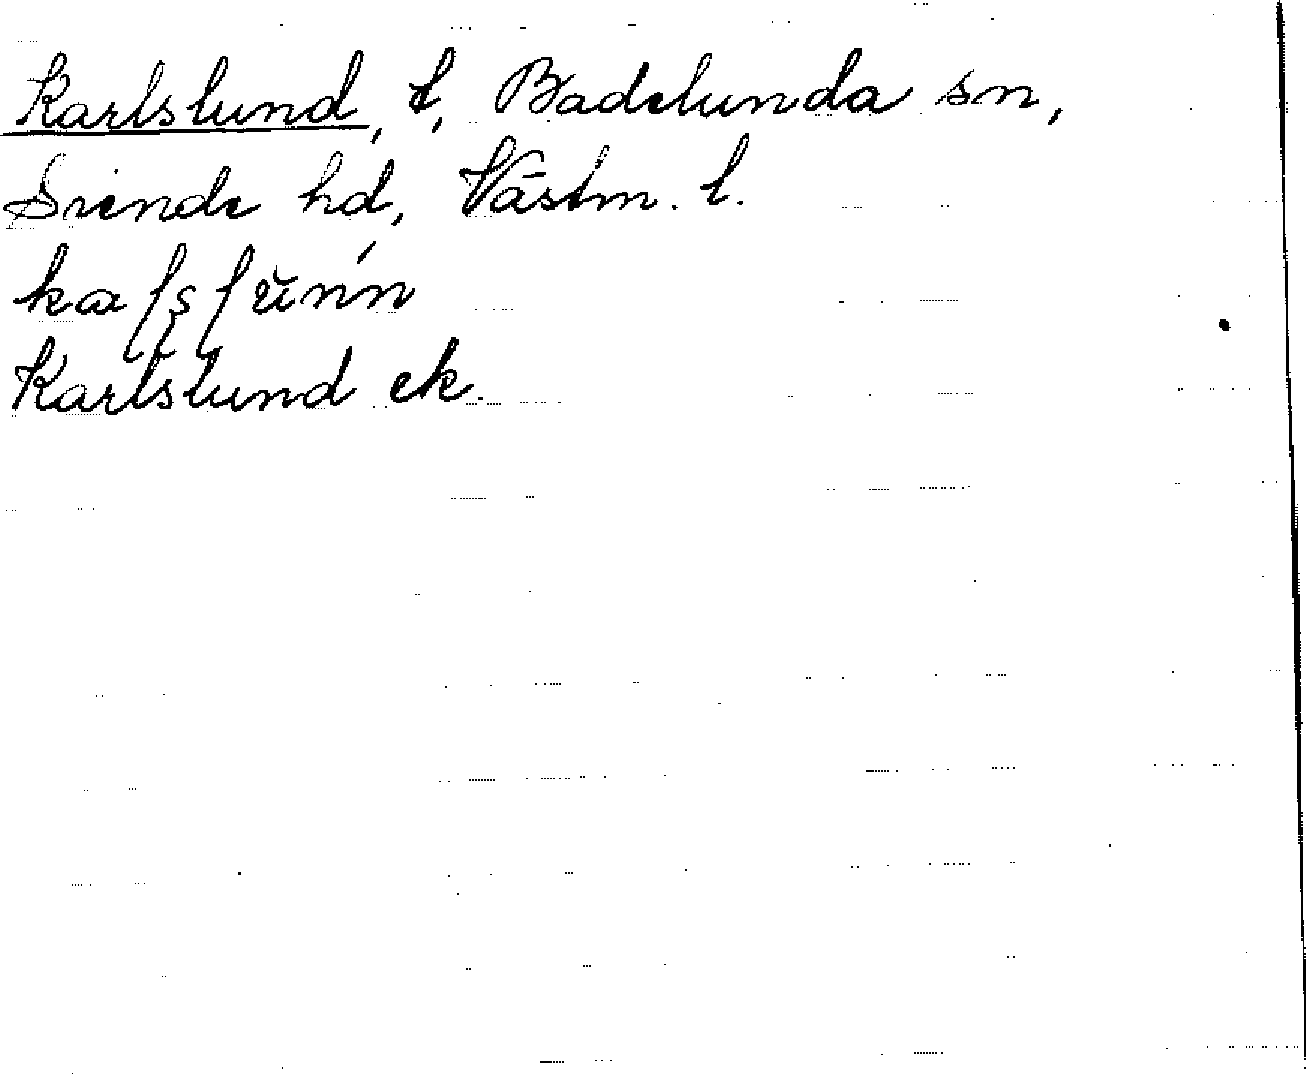 Karlslund, t, Badelunda sn,
Siende hd, Västm. l.
Karlslund ek.